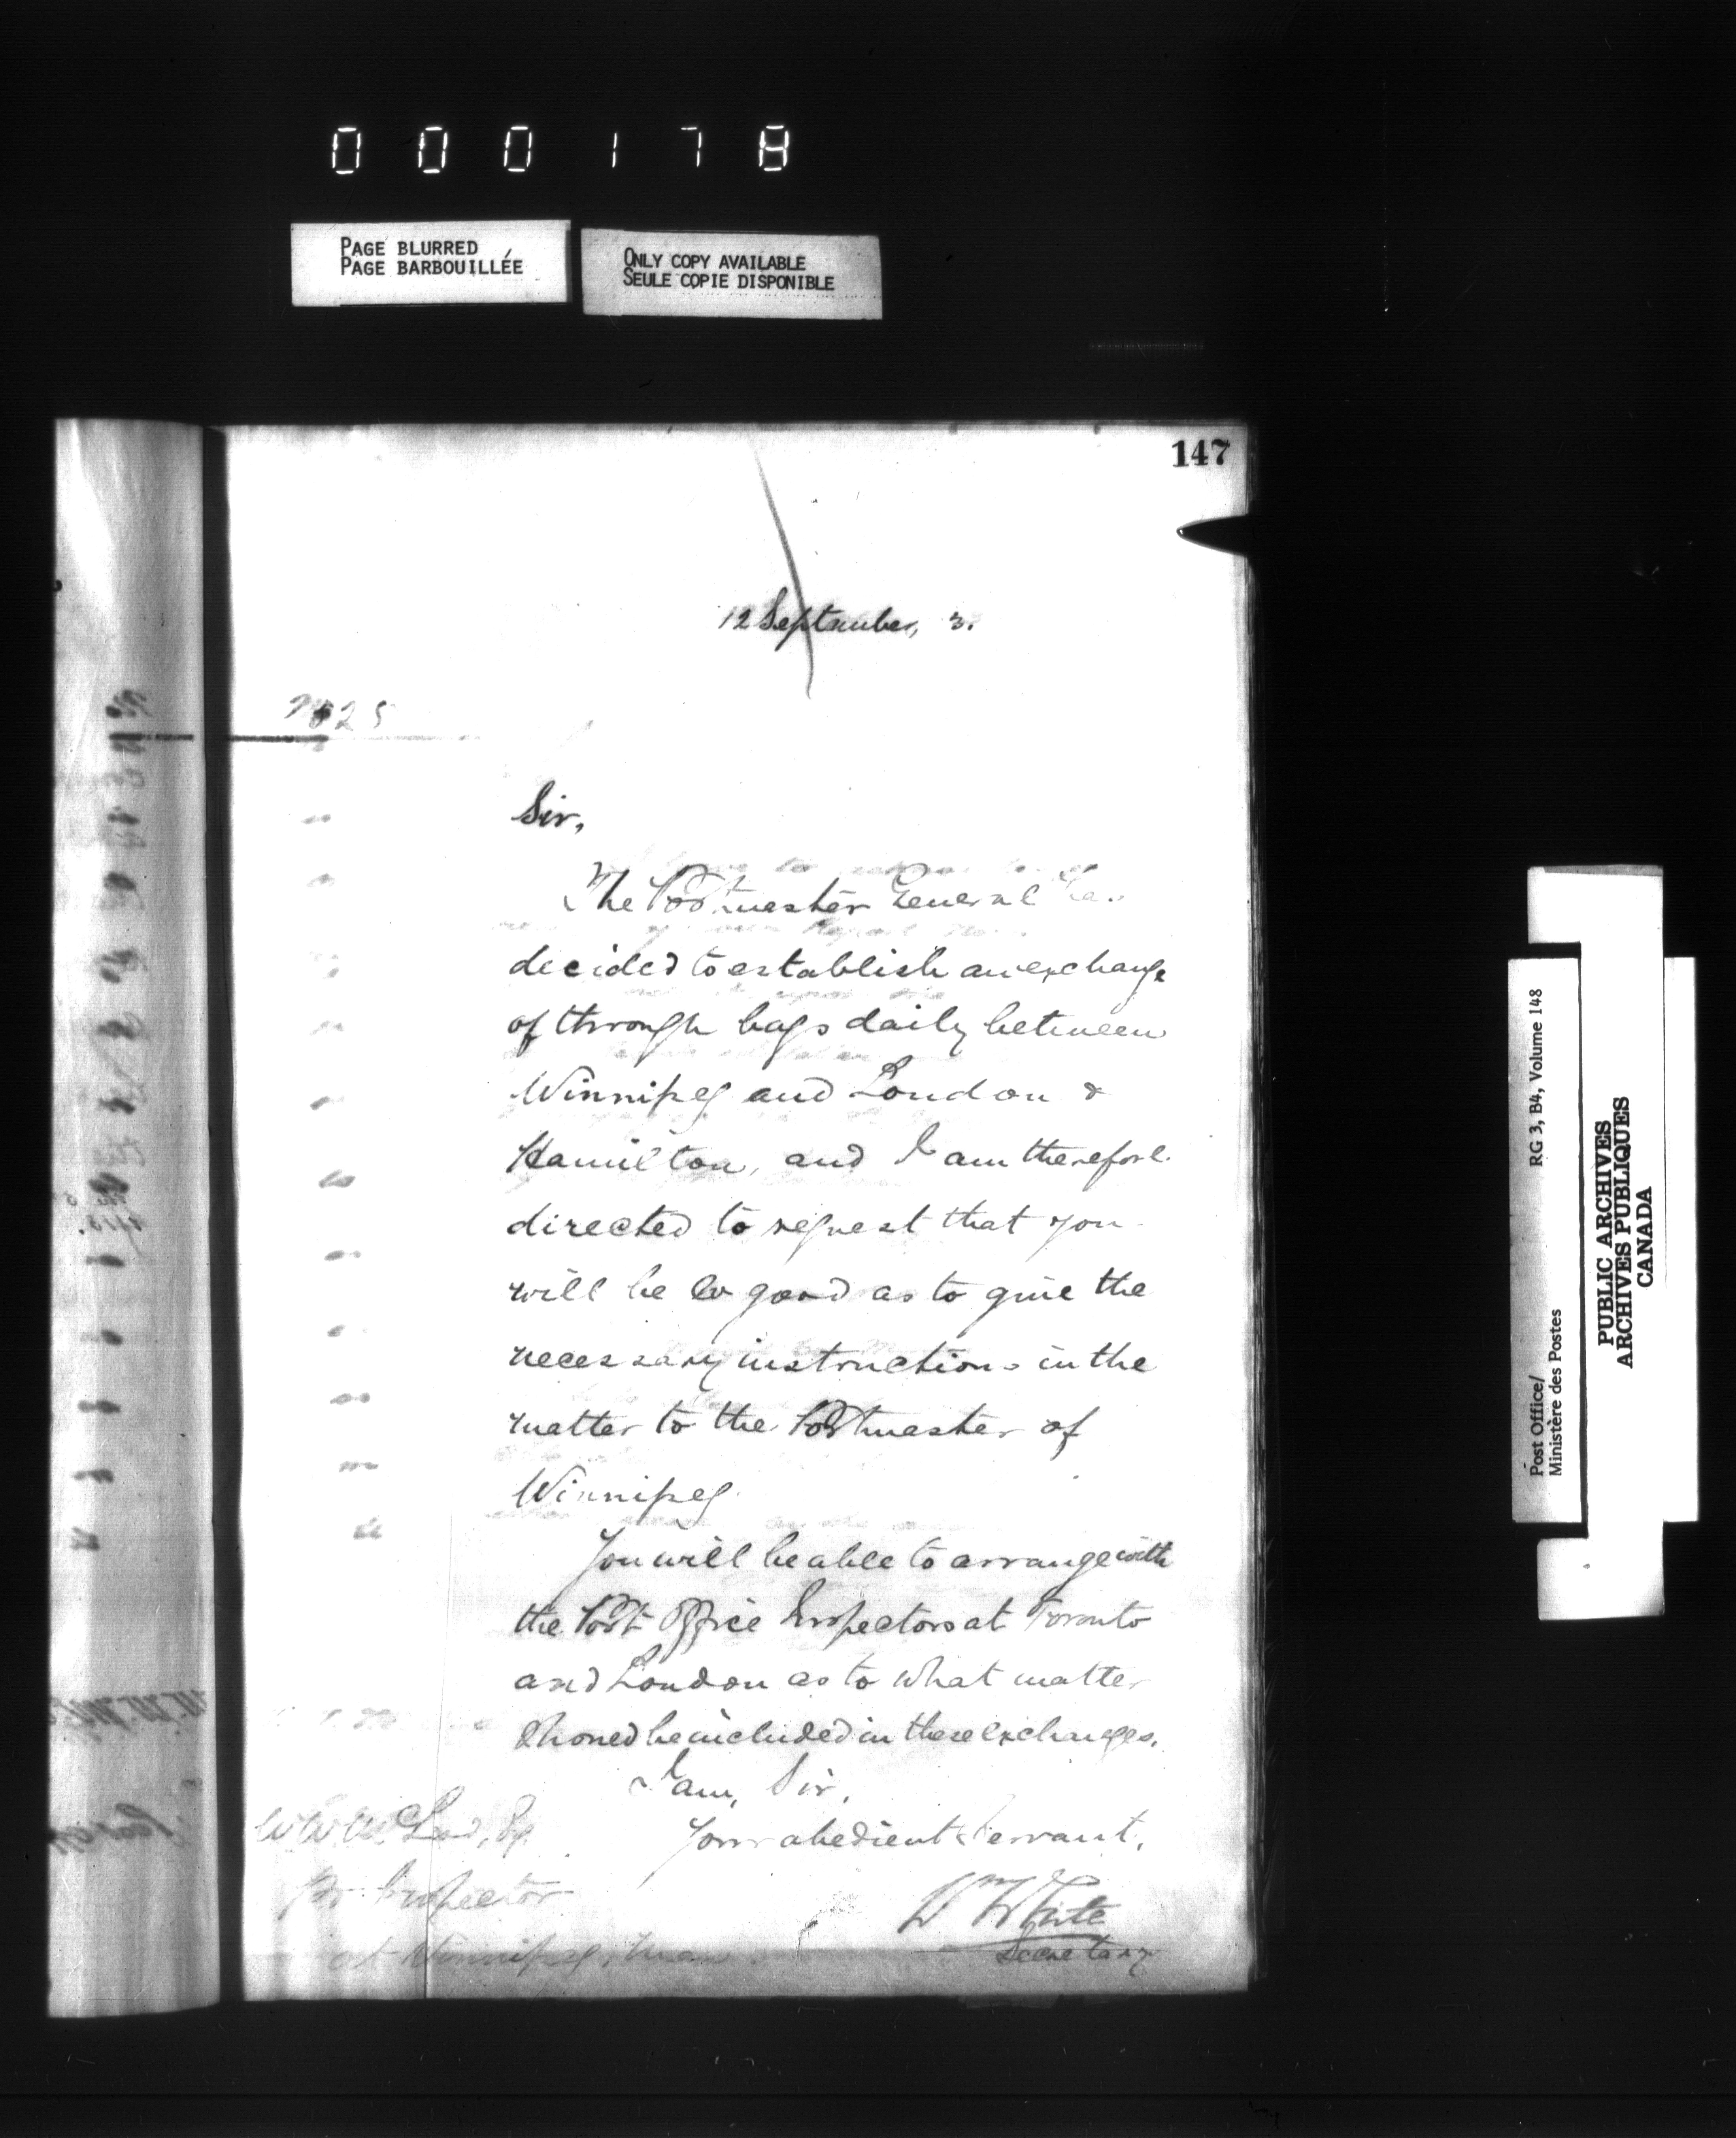 000178
PAGE BLURRED
PAGE BARBOUILLÉE
ONLY COPY AVAILABLE
SEULE COPIE DISPONIBLE
147
12 September, 3.
Sir,
The Postmaster General has
decided to establish an exchange
of through bags daily between
Winnipeg and London &
Hamilton, and I am therefore
directed to request that you
will be so good as to give the
necessary instructions in the
matter to the Postmaster of
Winnipeg.
You will be able to arrange with
the Post Office Inspectors at Toronto
and London as to what matter
should be included in these exchanges.
I am, Sir,
Your obedient Servant,
Wm White
Secretary
W W McLeod, Esq.
P.O. Inspector
at Winnipeg, Man.
Post Office/
Ministère des Postes
RG 3, B4, Volume 148
PUBLIC ARCHIVES
ARCHIVES PUBLIQUES
CANADA